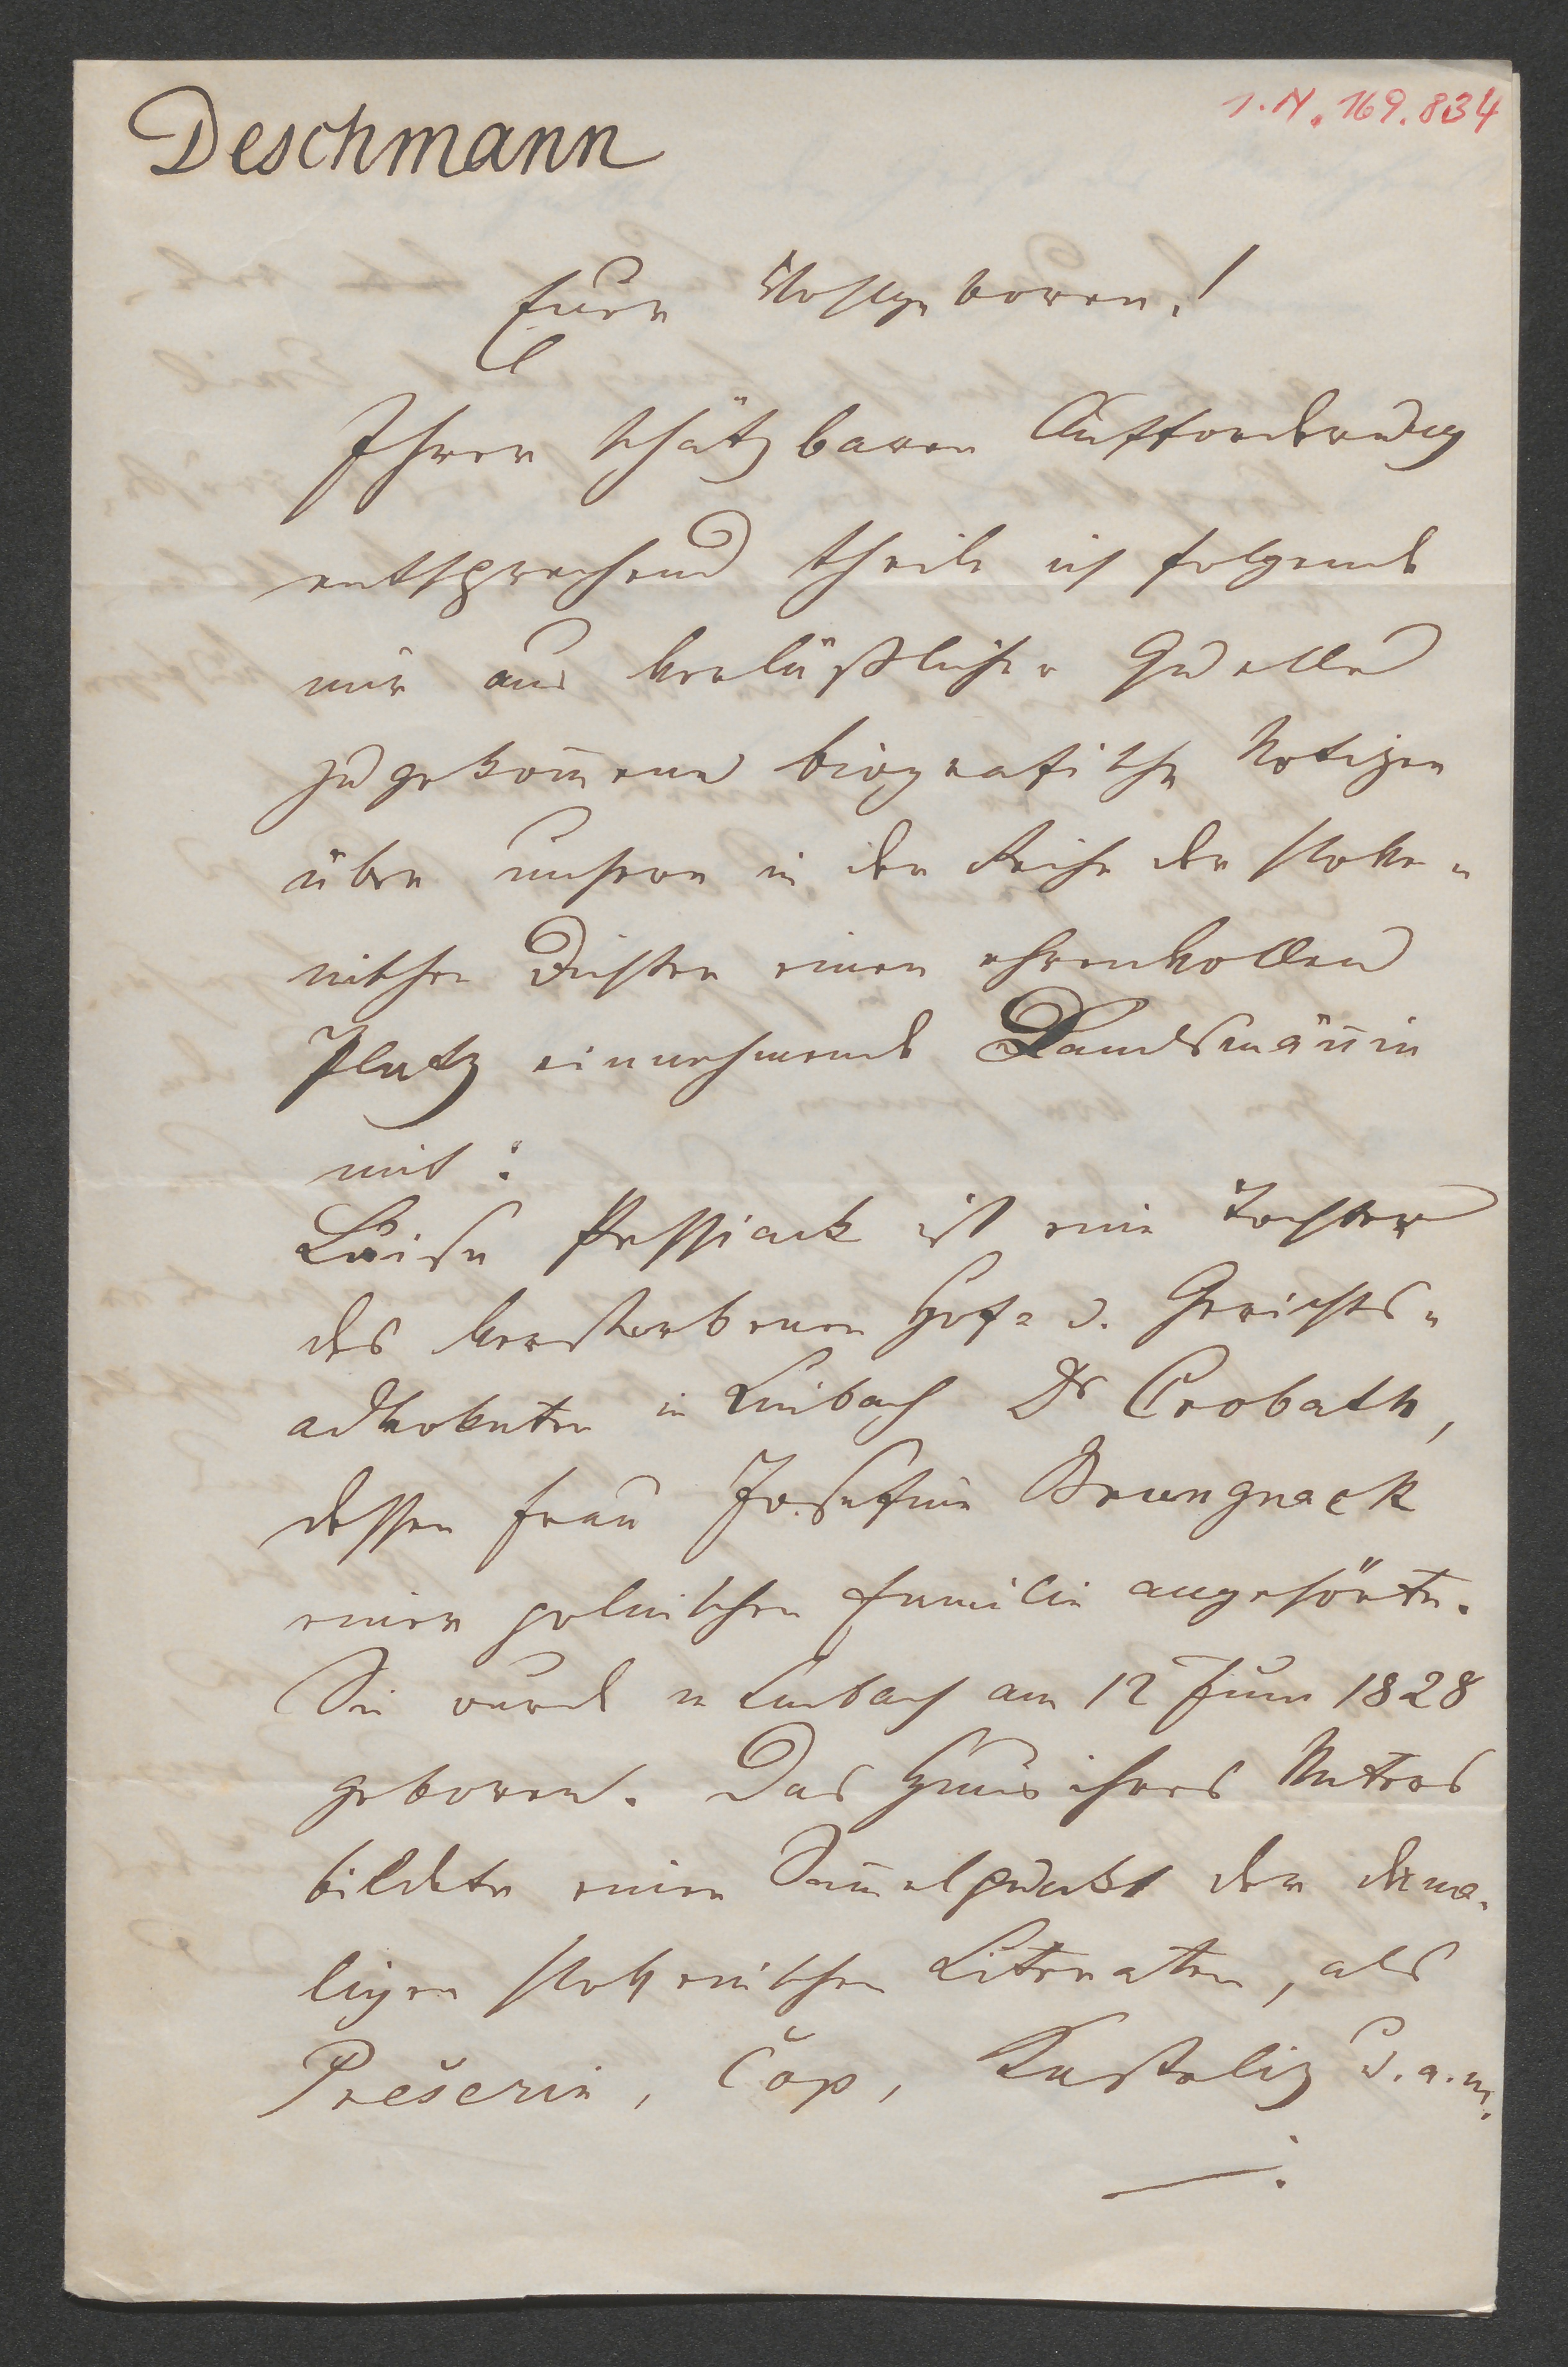 Deschmann
I. N. 169.834
Euer Wohlgeboren!
Ihrer schätzbaren Aufforderung
entsprechend theile ich folgende
mir aus verläßlicher Quelle
zugekom̅ene biografische Notizen
über unsere in der Reihe der slove-
nischen Dichter einen ehrenvollen
Platz einnehmende Landsmän̅in
mit:
Luise Pessiack ist eine Tochter
des verstorbenen Hof- u. Gerichts-
advokaten in Laibach Dr Crobath,
dessen Frau Josefine Brungnack
einer polnischen Familie angehörte.
Sie wurde in Laibach am 12 Juni 1828
geboren. Das Haus ihres Vaters
bildete einen Sam̅elpunkt der dama-
ligen slovenischen Literaten, als
Prešerin, Čop, Kasteliz u. a. m.